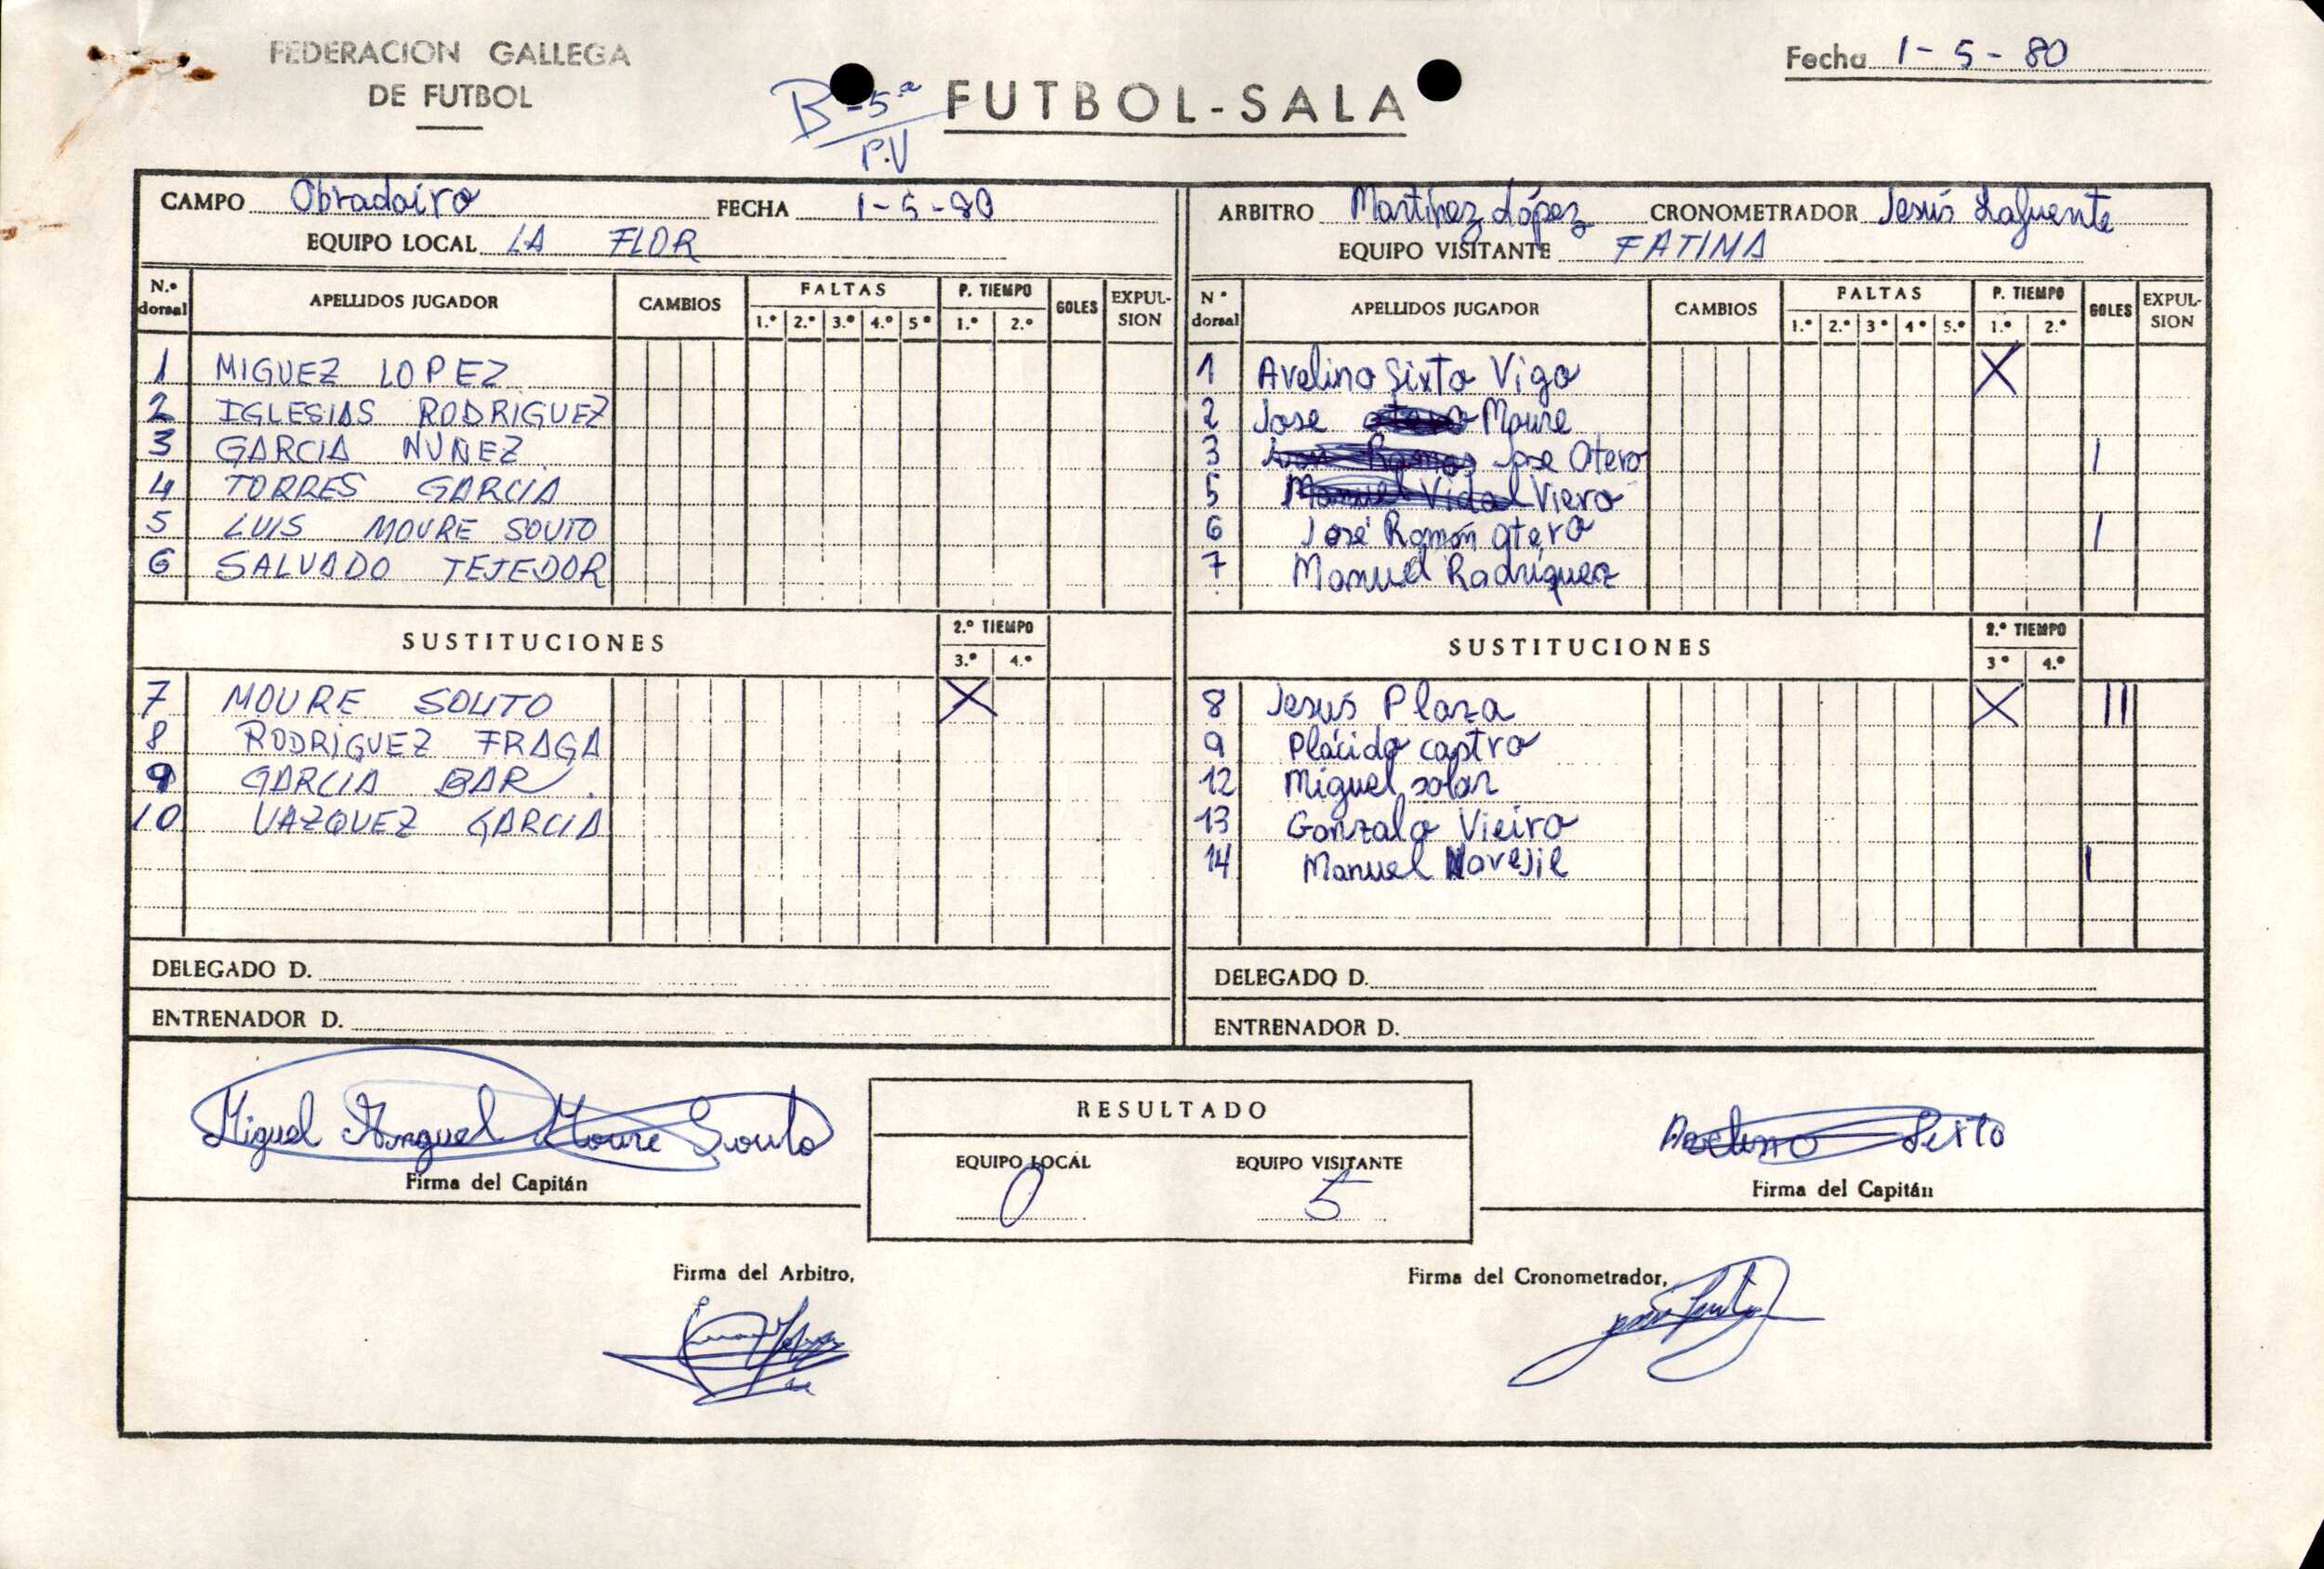 FEDERACION GALLEGA
DE FUTBOL
B-5ª
P.V
FUTBOL-SALA
Fecha 1-5-80
CAMPO Obradoiro FECHA 1-5-80
EQUIPO LOCAL LA FLOR
N.º dorsal APELLIDOS JUGADOR CAMBIOS FALTAS 1.º 2.º 3.º 4.º 5º P. TIEMPO 1.º 2.º GOLES EXPULSION
1 MIGUEZ LOPEZ
2 IGLESIAS RODRIGUEZ
3 GARCIA NUÑEZ
4 TORRES GARCIA
5 LUIS MOURE SOUTO
6 SALVADO TEJEDOR
SUSTITUCIONES 2.º TIEMPO 3.º 4.º
7 MOURE SOUTO X
8 RODRIGUEZ FRAGA
9 GARCIA BAR
10 VAZQUEZ GARCIA
DELEGADO D.
ENTRENADOR D.
ARBITRO Martinez López CRONOMETRADOR Jesús Lafuente
EQUIPO VISITANTE FATIMA
Nº dorsal APELLIDOS JUGADOR CAMBIOS FALTAS 1.º 2.º 3º 4º 5.º P. TIEMPO 1.º 2.º GOLES EXPULSION
1 Avelino Sixto Vigo X
2 Jose Moure
3 Jose Otero I
5 Viero
6 José Ramón Otero I
7 Manuel Rodriguez
SUSTITUCIONES 2.º TIEMPO 3º 4.º
8 Jesús Plaza X II
9 Plácido castro
12 Miguel solar
13 Gonzalo Vieiro
14 Manuel I
DELEGADO D.
ENTRENADOR D.
Miguel Moure Souto
Firma del Capitán
RESULTADO
EQUIPO LOCAL EQUIPO VISITANTE
0 5
Avelino Sixto
Firma del Capitán
Firma del Arbitro,
Firma del Cronometrador,